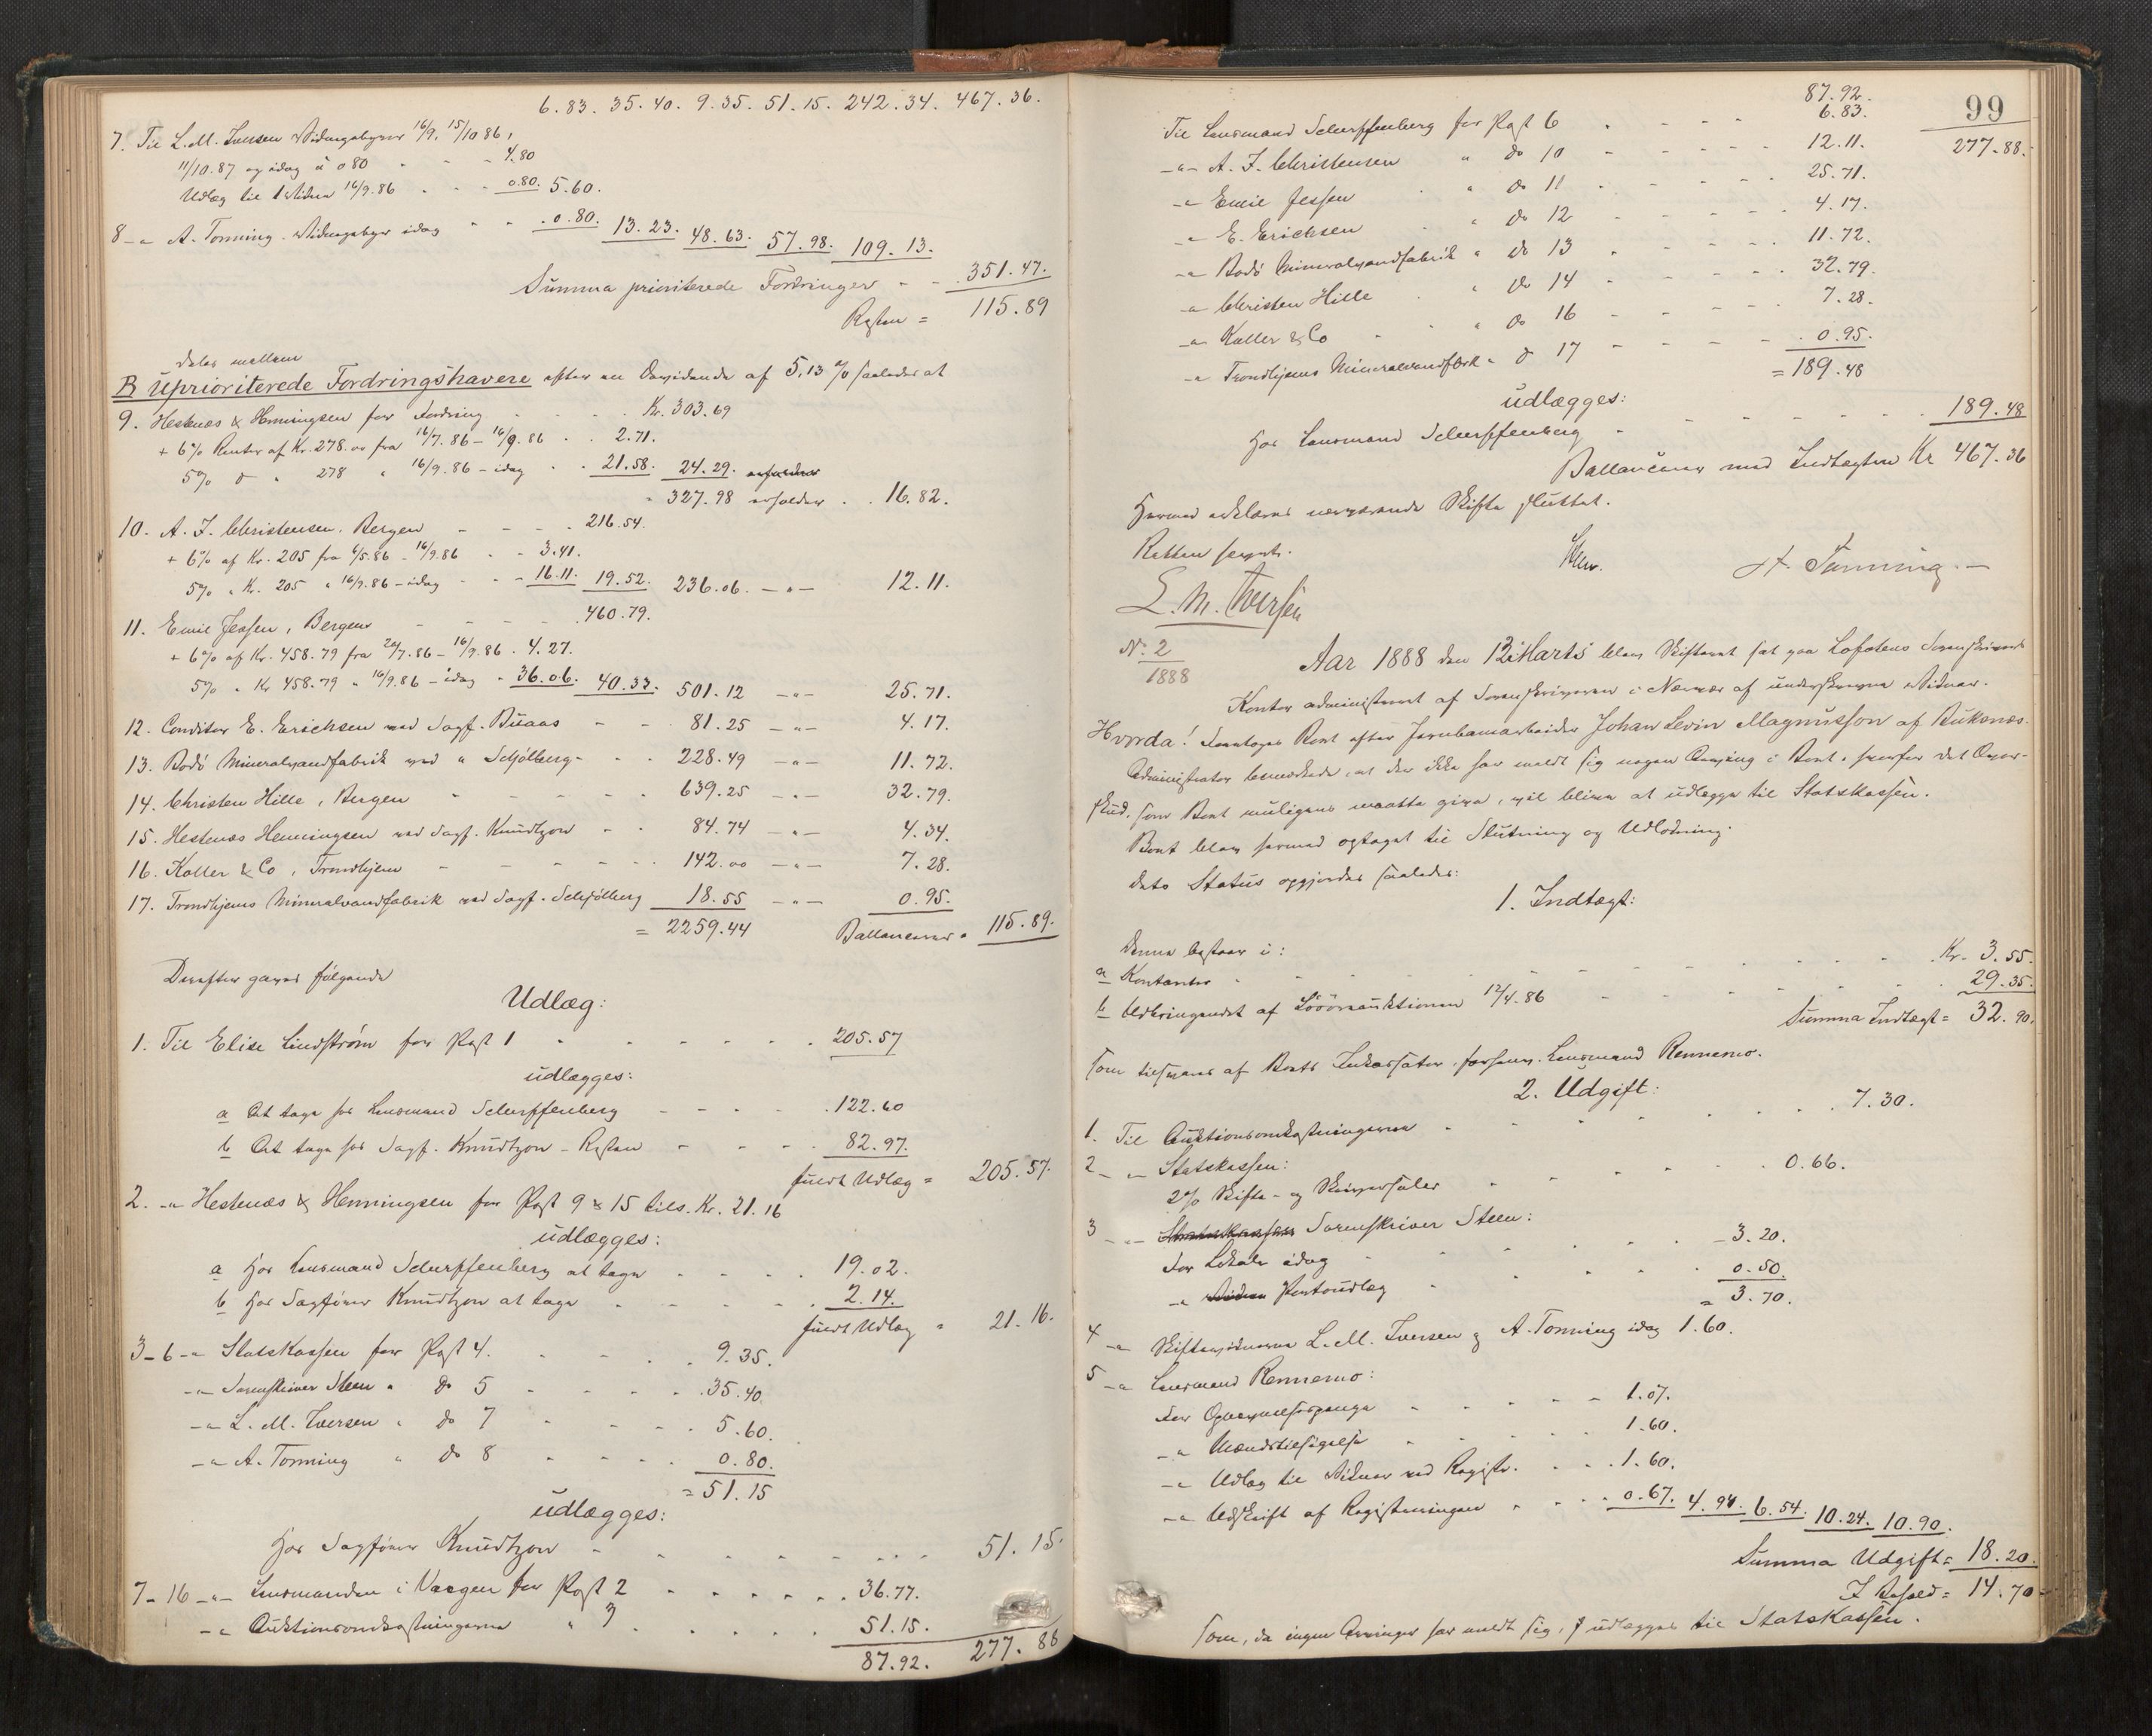 6.83. 35.40. 9.35. 51.15. 242.34. 467.36.
7. Til L. M. Iversen Vidnegebyrer 16/9, 15/10 86,
11/10.87 og idag à 0 80 - - 4.80
Udlæg til 1 Vidne 16/9.86 - - 0.80. 5.60.
8 -"- A. Tonning. Vidnegebyr idag - - 0.80. 13.23. 48.63. 57.98. 109.13.
Summa prioriterede Fordringer - - 351.47.
Resten = 115.89
deles mellem
B Uprioriterede Fordringshavere efter en Dividende af 5,13 % saaledes at
9. Hestenæs & Henningsen for Fordring - - Kr. 303.69
+ 6% Renter af Kr. 278.00 fra 16/7.86 - 16/9.86 - 2.71.
5% d " 278 " 16/9.86 - idag - 21.58. 24.29. erholder
" 327.98 erholder - 16.82.
10. A. J. Christensen, Bergen - - - 216.54.
+ 6% af Kr. 205 fra 6/5.86 - 16/9.86 - 3.41.
5% " Kr. 205 " 16/9.86 - idag - 16.11. 19.52. 236.06. -"- 12.11.
11. Emil Jessen, Bergen - - - 460.79.
+ 6% af Kr. 458.79 fra 20/7.86 - 16/9.86. 4.27.
5% " Kr 458.79 " 16/9.86 - idag - 36.06. 40.33. 501.12 -"- 25.71.
12. Conditor E. Erichsen ved Sagf. Buaas - - 81.25 -"- 4.17.
13. Bodö Mineralvandfabrik ved " Schjölberg - - 228.49 -"- 11.72.
14. Christen Hille, Bergen - - - 639.25 -"- 32.79.
15. Hestenæs Henningsen ved Sagf. Knudtzon - - 84.74 -"- 4.34.
16. Koller & Co, Trondhjem - - - 142.00 -"- 7.28.
17. Trondhjems Mineralvandfabrik ved Sagf. Schjölberg 18.55 -"- 0.95.
= 2259.44 Ballancerer = 115.89.
Derefter gjøres følgende
Udlæg:
1. Til Elise Lindstrøm for Post 1 - - - 205.57
udlægges:
a At tage hos Lensmand Scharffenberg - - - 122.60
b At tage hos Sagf. Knudtzon - Resten - - - 82.97.
fuldt Udlæg = 205.57.
2. -"- Hestenæs & Henningsen for Post 9 & 15 tils. Kr. 21.16
udlægges:
a Hos Lensmand Scharffenberg at tage - - - 19.02.
b Hos Sagfører Knudtzon at tage - - - 2.14.
fuldt Udlæg = 21.16.
3-6 -"- Statskassen for Post 4. - - - 9.35.
-"- Sorenskriver Steen " do 5 - - - 35.40.
-"- L. M. Iversen " do 7 - - - 5.60.
-"- A. Tonning " do 8 - - - 0.80.
= 51.15
udlægges:
Hos Sagfører Knudtzon - - - 51.15.
7-16 -"- Lensmanden i Vaagen for Post 2 - - - 36.77.
-"- Auktionsomkostningerne " 3 - - - 51.15.
87.92. 277.88
99
87.92.
Til Lensmand Scharffenberg for Post 6 - - - 6.83. 277.88.
-"- A. J. Christensen " do 10 - - - 12.11.
-"- Emil Jessen " do 11 - - - 25.71.
-"- E. Erichsen " do 12 - - - 4.17.
-"- Bodö Mineralvandfabrik " do 13 - - - 11.72.
-"- Christen Hille " do 14 - - - 32.79.
-"- Koller & Co " do 16 - - - 7.28.
-"- Trondhjems Mineralvandfbrk " d 17 - - - 0.95.
= 189.48
udlægges:
Hos Lensmand Scharffenberg - - - 189.48
Ballancerer med Indtægten Kr 467.36
Hermed erklæres nærværende Skifte sluttet.
Retten hævet.
Steen.
A. Tonning.
L. M. Iversen
No. 2
1888
Aar 1888 den 13 Marts blev Skifteret sat paa Lofotens Sorenskriver
Kontor administreret af Sorenskriveren i Nærvær af underskrevne Vidner.
Hvorda! Foretoges Boet efter Jernbanearbeider Johan Levin Magnusson af Buksnæs.
Administrator bemærkede, at der ikke har meldt sig nogen Arving i Boet, hvorfor det Over-
skud, som Boet muligens maatte give, vil blive at udlægge til Statskassen.
Boet blev hermed optaget til Slutning og Udlodning.
dets Status opgjordes saaledes:
1. Indtægt:
Denne bestaar i:
a Kontanter - - - Kr. 3.55.
b Udbringendet af Løsøreauktionen 12/4.86 - - - 29.35.
Summa Indtægt = 32.90.
som tilsvares af Boets Inkassator, forhenv. Lensmand Rennemo.
2. Udgift:
1. Til Auktionsomkostningerne - - - 7.30.
2 -"- Statskassen:
2% Skifte- og Skriversalær - - - 0.66.
3 -"- Statskassen Sorenskriver Steen:
For Lokale idag - - - 3.20.
-"- Portoudlæg - - - 0.50.
= 3.70.
4 -"- Skiftevidnerne L. M. Iversen & A. Tonning idag 1.60.
5 -"- Lensmand Rennemo:
For Opnævnelsespenge - - - 1.07.
-"- Mændstilsigelse - - - 1.60.
-"- Udlæg til Vidner ved Registr. - - 1.60.
-"- Udskrift af Registreringen - - 0.67. 4.94. 6.54. 10.24. 10.90.
Summa Udgift = 18.20.
I Behold = 14.70
som, da ingen Arvinger har meldt sig, udlægges til Statskassen.